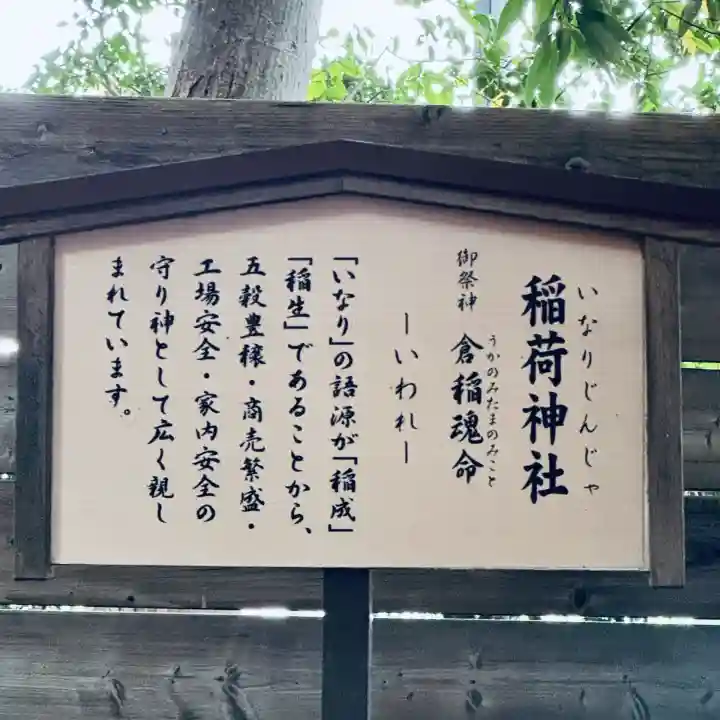 いなりじんじゃ
稲荷神社
御祭神 倉稲魂命
うかのみたまのみこと
ーいわれー
「いなり」の語源が「稲成」
「稲生」であることから、
五穀豊穣・商売繁盛・
工場安全・家内安全の
守り神として広く親し
まれています。